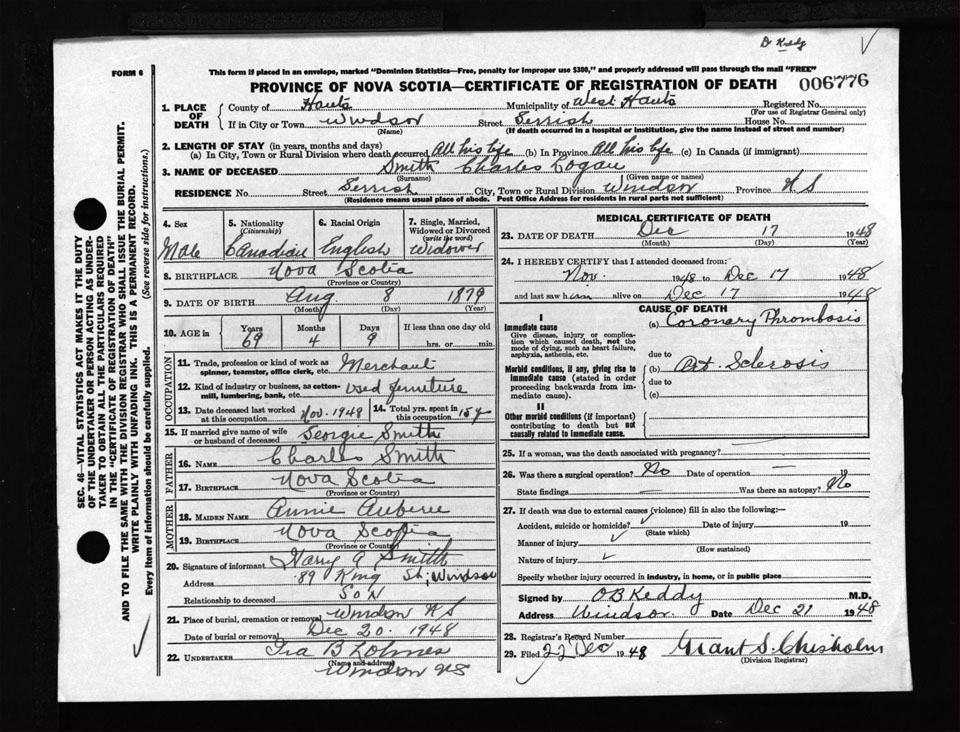 D Keddy
FORM 6
This form if placed in an envelope, marked "Dominion Statistics—Free, penalty for improper use $300," and properly addressed will pass through the mail "FREE"
PROVINCE OF NOVA SCOTIA—CERTIFICATE OF REGISTRATION OF DEATH 006776
1. PLACE OF DEATH
County of Hants Municipality of West Hants Registered No.
(For use of Registrar General only)
If in City or Town Windsor Street Gerrish House No.
(Name) (If death occurred in a hospital or institution, give the name instead of street and number)
2. LENGTH OF STAY (in years, months and days)
(a) In City, Town or Rural Division where death occurred All his life (b) In Province All his life (c) In Canada (if immigrant)
3. NAME OF DECEASED Smith Charles Logan
(Surname) (Given name or names)
RESIDENCE No. Street Gerrish City, Town or Rural Division Windsor Province N S
(Residence means usual place of abode. Post Office Address for residents in rural parts not sufficient)
SEC. 46—VITAL STATISTICS ACT MAKES IT THE DUTY
OF THE UNDERTAKER OR PERSON ACTING AS UNDER-
TAKER TO OBTAIN ALL THE PARTICULARS REQUIRED
IN THE "CERTIFICATE OF REGISTRATION OF DEATH"
AND TO FILE THE SAME WITH THE DIVISION REGISTRAR WHO SHALL ISSUE THE BURIAL PERMIT.
WRITE PLAINLY WITH UNFADING INK. THIS IS A PERMANENT RECORD.
Every item of information should be carefully supplied. (See reverse side for instructions.)
4. Sex 5. Nationality (Citizenship) 6. Racial Origin 7. Single, Married, Widowed or Divorced (write the word)
Male Canadian English Widower
8. BIRTHPLACE Nova Scotia
(Province or Country)
9. DATE OF BIRTH Aug. 8 1879
(Month) (Day) (Year)
10. AGE in Years Months Days If less than one day old
69 4 9 hrs. or min.
OCCUPATION
11. Trade, profession or kind of work as spinner, teamster, office clerk, etc. Merchant
12. Kind of industry or business, as cotton-mill, lumbering, bank, etc. used furniture
13. Date deceased last worked at this occupation Nov. 1948 14. Total yrs. spent in this occupation 15 y
15. If married give name of wife or husband of deceased Georgie Smith
FATHER
16. NAME Charles Smith
17. BIRTHPLACE Nova Scotia
(Province or Country)
MOTHER
18. MAIDEN NAME Annie
19. BIRTHPLACE Nova Scotia
(Province or Country)
20. Signature of informant Harry A Smith
Address 89 King St; Windsor
Relationship to deceased Son
21. Place of burial, cremation or removal Windsor N S
Date of burial or removal Dec 20. 1948
22. UNDERTAKER Ira B
(Name and address)
Windsor NS
MEDICAL CERTIFICATE OF DEATH
23. DATE OF DEATH Dec 17 1948
(Month) (Day) (Year)
24. I HEREBY CERTIFY that I attended deceased from:
Nov. 1948 to Dec 17 1948
and last saw him alive on Dec 17 1948
CAUSE OF DEATH
I
Immediate cause
Give disease, injury or complication which caused death, not the mode of dying, such as heart failure, asphyxia, asthenia, etc.
(a) Coronary Thrombosis
due to
Morbid conditions, if any, giving rise to immediate cause (stated in order proceeding backwards from immediate cause).
(b) Art. Sclerosis
due to
(c)
II
Other morbid conditions (if important) contributing to death but not causally related to immediate cause.
25. If a woman, was the death associated with pregnancy?
26. Was there a surgical operation? No Date of operation — 19
State findings Was there an autopsy? No
27. If death was due to external causes (violence) fill in also the following:—
Accident, suicide or homicide? Date of injury 19
(State which)
Manner of injury
(How sustained)
Nature of injury
Specify whether injury occurred in industry, in home, or in public place
Signed by O B Keddy M.D.
Address Windsor. Date Dec 21 1948
28. Registrar's Record Number
29. Filed 22 Dec 1948 Grant S. Chisholm
(Division Registrar)